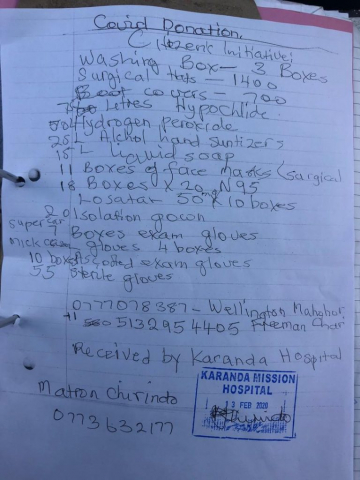 Covid Donation.
Citozenic Initiative:
Washing Box – 3 Boxes
Surgical Hats – 1400
Boot covers – 700
Litres Hypochlide.
Hydrogen peroxide
25 L Alchol hand suntizers
15 L liquid soap
11 Boxes of face Masks (surgical
18 Boxes X 20 N95
Losatar 50 X 10 boxes
20 Isolation gown
Boxes exam gloves
gloves 4 boxes
10 boxes exam gloves
55 sterile gloves
0777078387 – Wellington
5132954405 Freeman
Received by Karanda Hospital
Matron Chirindo
0773632177
KARANDA MISSION
HOSPITAL
13 FEB 2020